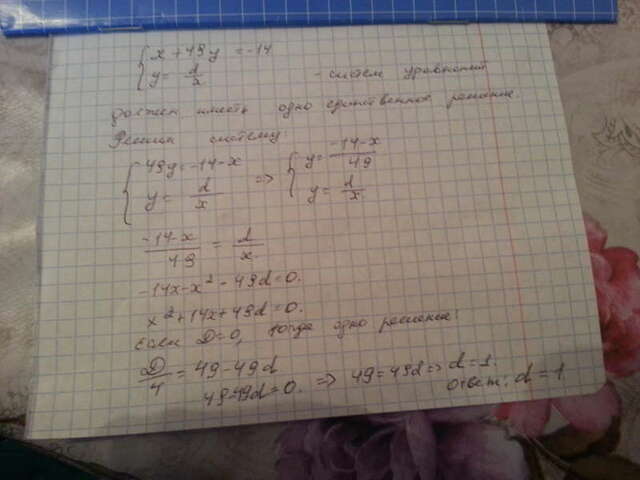 { x + 49y = -14
{ y = d/x - систем уравнений
должен иметь одно единственное решение.
Решим систему:
{ 49y = -14-x => { y = -14-x/49
{ y = d/x { y = d/x
-14-x/49 = d/x
-14x-x² - 49d = 0.
x² + 14x + 49d = 0.
Если D=0, тогда одно решение:
D/4 = 49 - 49d
49-49d = 0. => 49 = 49d => d = 1.
Ответ: d = 1